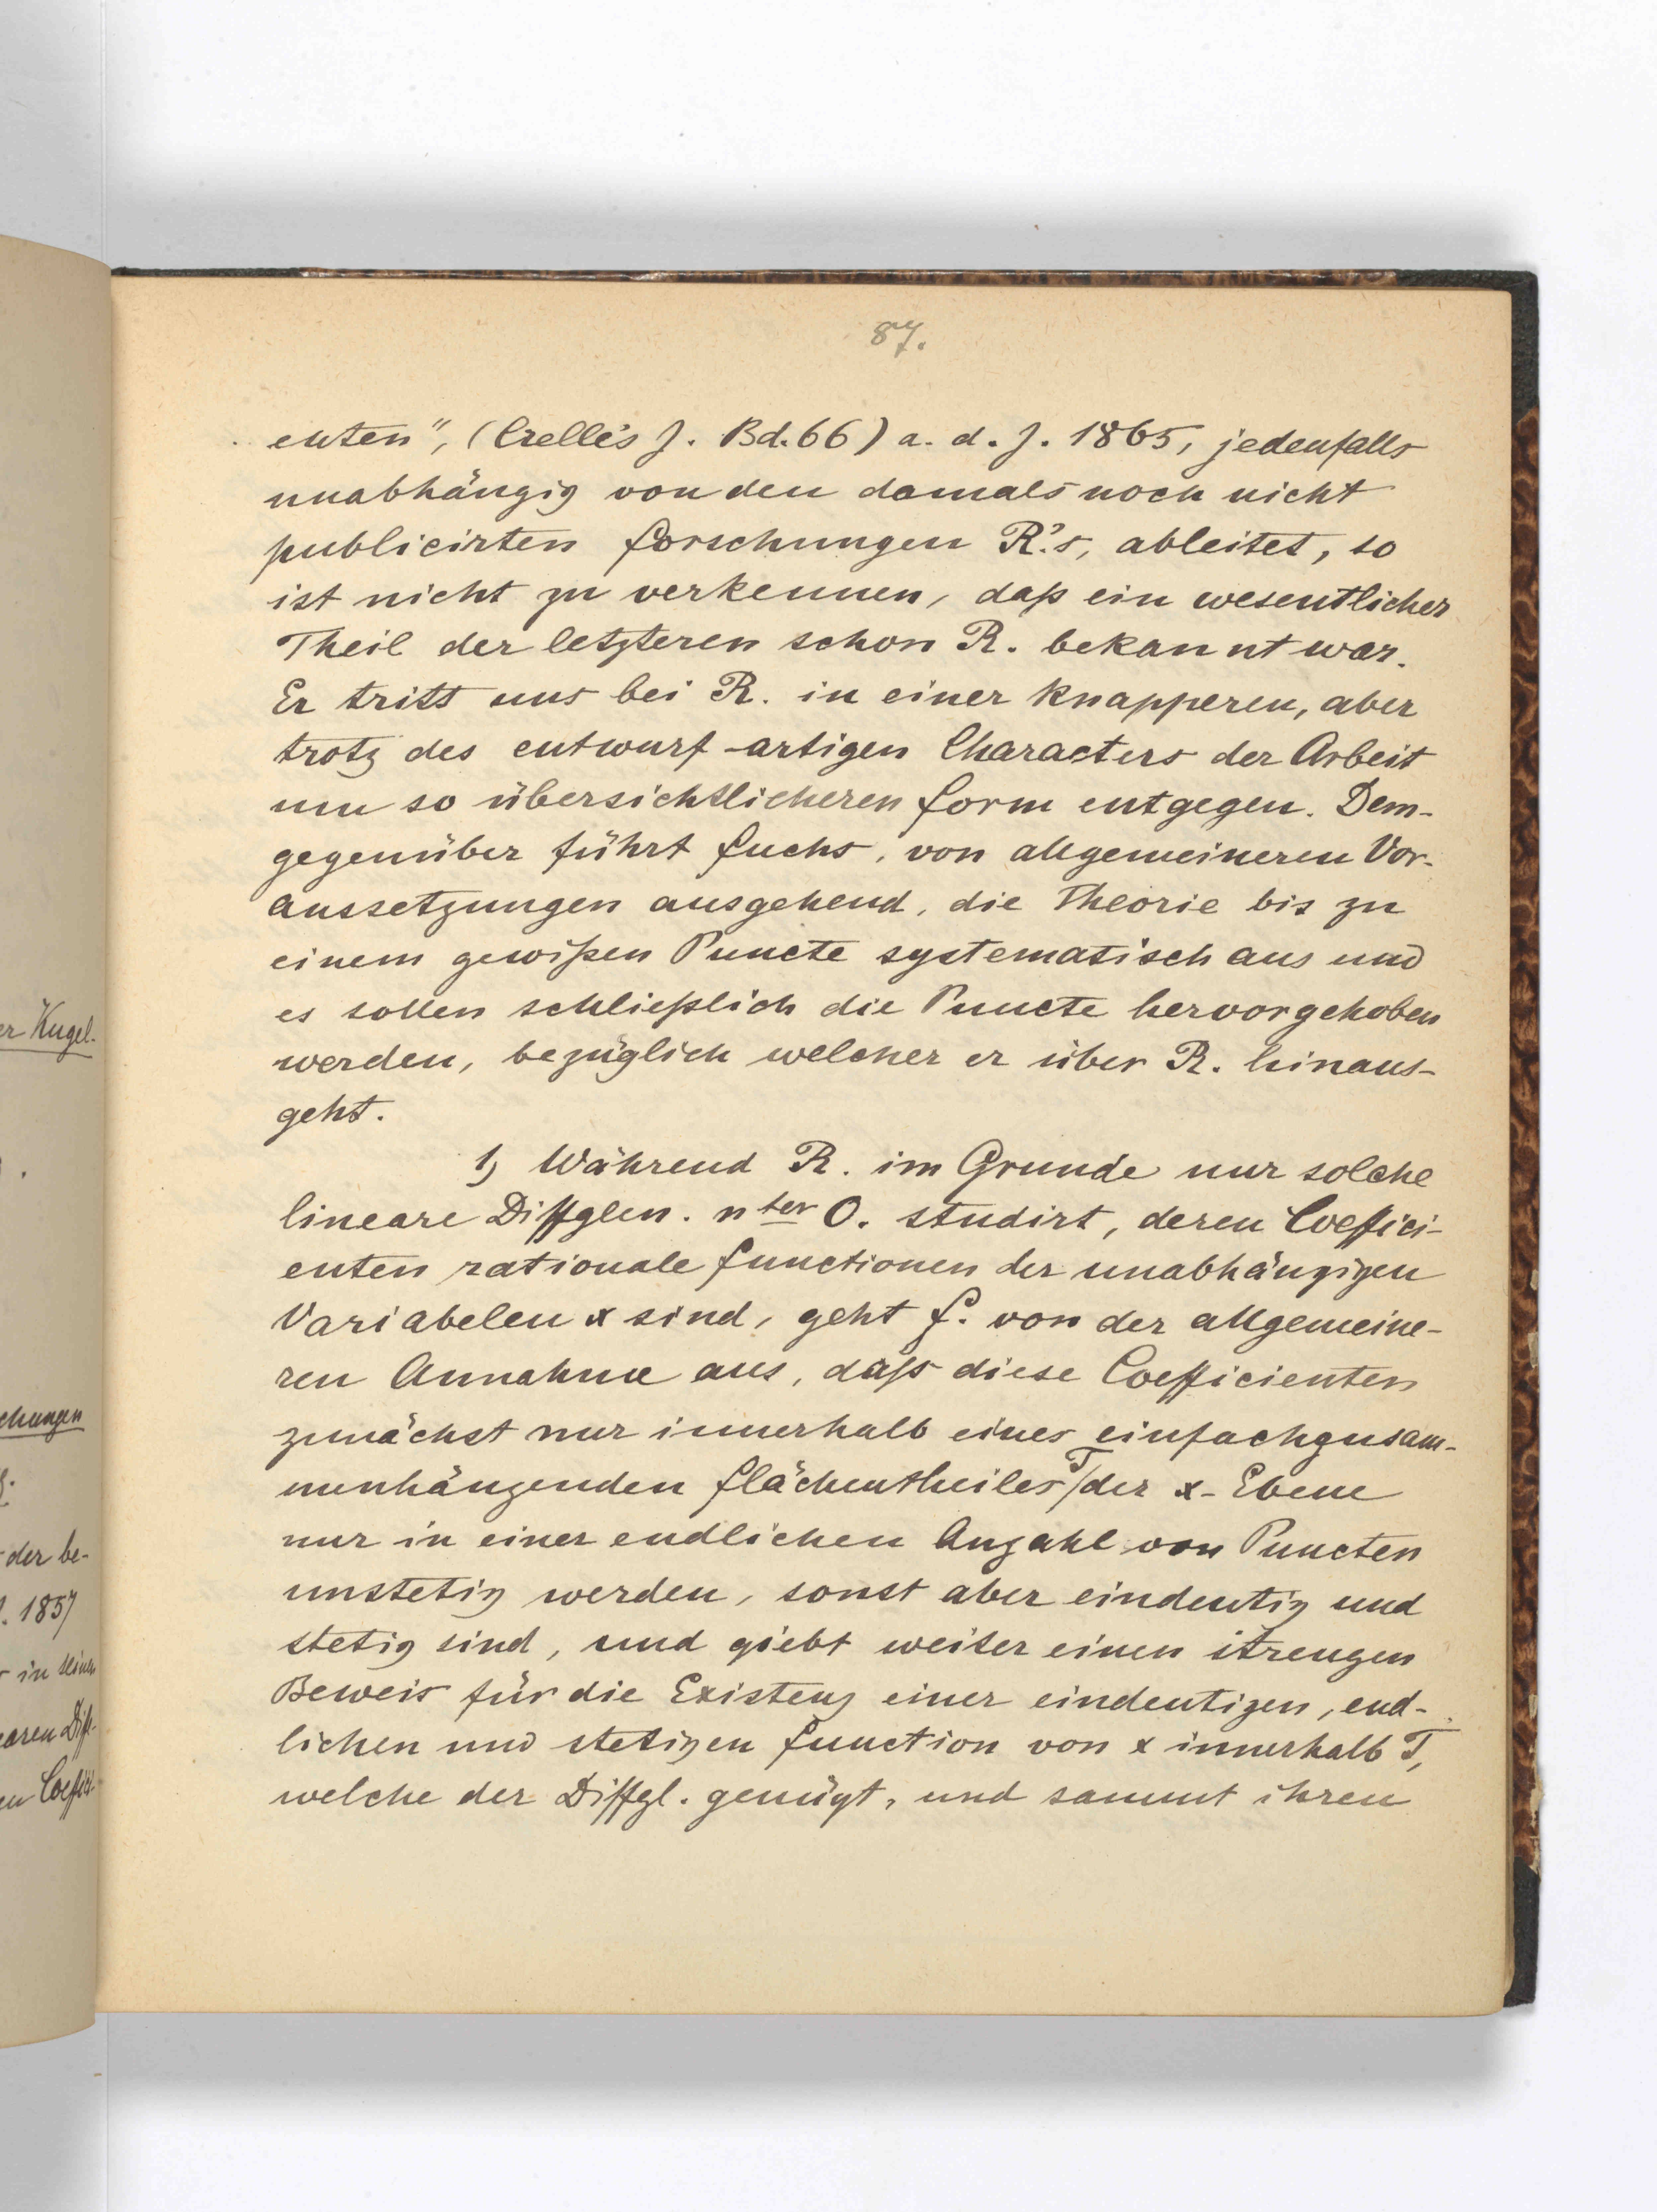 87.
enten", (Crelle's J. Bd. 66) a. d. J. 1865, jedenfalls
unabhängig von den damals noch nicht
publicirten Forschungen R.'s, ableitet, so
ist nicht zu verkennen, daß ein wesentlicher
Theil der letzteren schon R. bekannt war.
Er tritt uns bei R. in einer knapperen, aber
trotz des entwurf-artigen Characters der Arbeit
um so übersichtlicheren Form entgegen. Dem-
gegenüber führt Fuchs, von allgemeineren Vor-
aussetzungen ausgehend, die Theorie bis zu
einem gewißen Puncte systematisch aus und
es sollen schließlich die Puncte hervorgehoben
werden, bezüglich welcher er über R. hinaus-
geht.
1) Während R. im Grunde nur solche
lineare Diffglen. nter O. studirt, deren Coeffici-
enten rationale Functionen der unabhängigen
Variabelen x sind, geht F. von der allgemeine-
ren Annahme aus, daß diese Coefficienten
zunächst nur innerhalb eines einfachzusam-
menhängenden Flächentheiles T der x-Ebene
nur in einer endlichen Anzahl von Puncten
unstetig werden, sonst aber eindeutig und
stetig sind, und giebt weiter einen strengen
Beweis für die Existenz einer eindeutigen, end-
lichen und stetigen Function von x innerhalb T,
welche der Diffgl. genügt, und sammt ihren
er Kugel-
chungen
der be-
1857
in seinen
earen Diff-
en Coeffici-